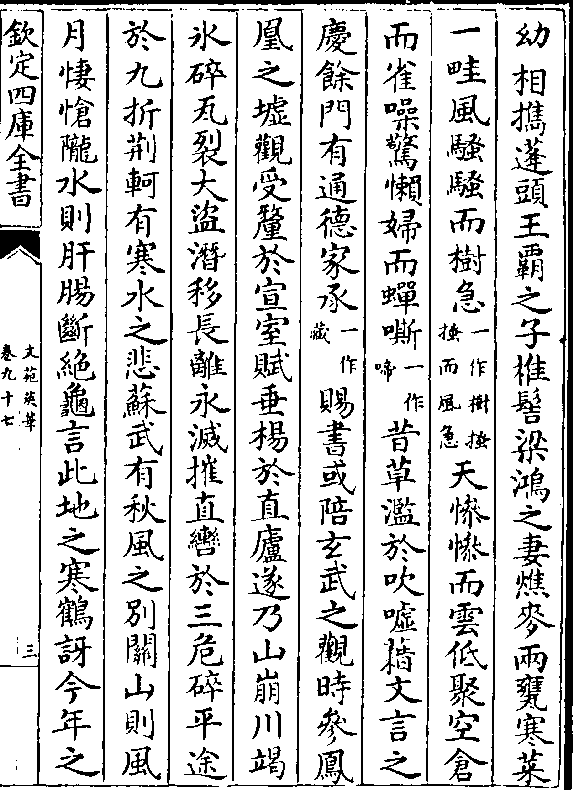 幼相擕蓬頭王霸之子椎髻梁鴻之妻燋麥兩甕寒菜
一畦風騷騷而樹急一作樹搔搔而風急天慘慘而雲低聚空倉
而雀噪驚懶婦而蟬嘶一作啼昔草濫於吹噓藉文言之
慶餘門有通德家承一作藏賜書或陪玄武之觀時參鳳
凰之墟觀受釐於宣室賦垂楊於直廬遂乃山崩川竭
氷碎瓦裂大盜潛移長離永滅摧直轡於三危碎平途
於九折荆軻有寒水之悲蘇武有秋風之別關山則風
月悽愴隴水則肝腸斷絶龜言此地之寒鶴訝今年之
欽定四庫全書
文苑英華
卷九十七
三